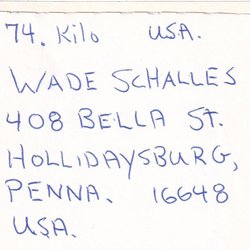 74. Kilo USA.
WADE SCHALLES
408 BELLA ST.
HOLLIDAYSBURG,
PENNA. 16648
USA.